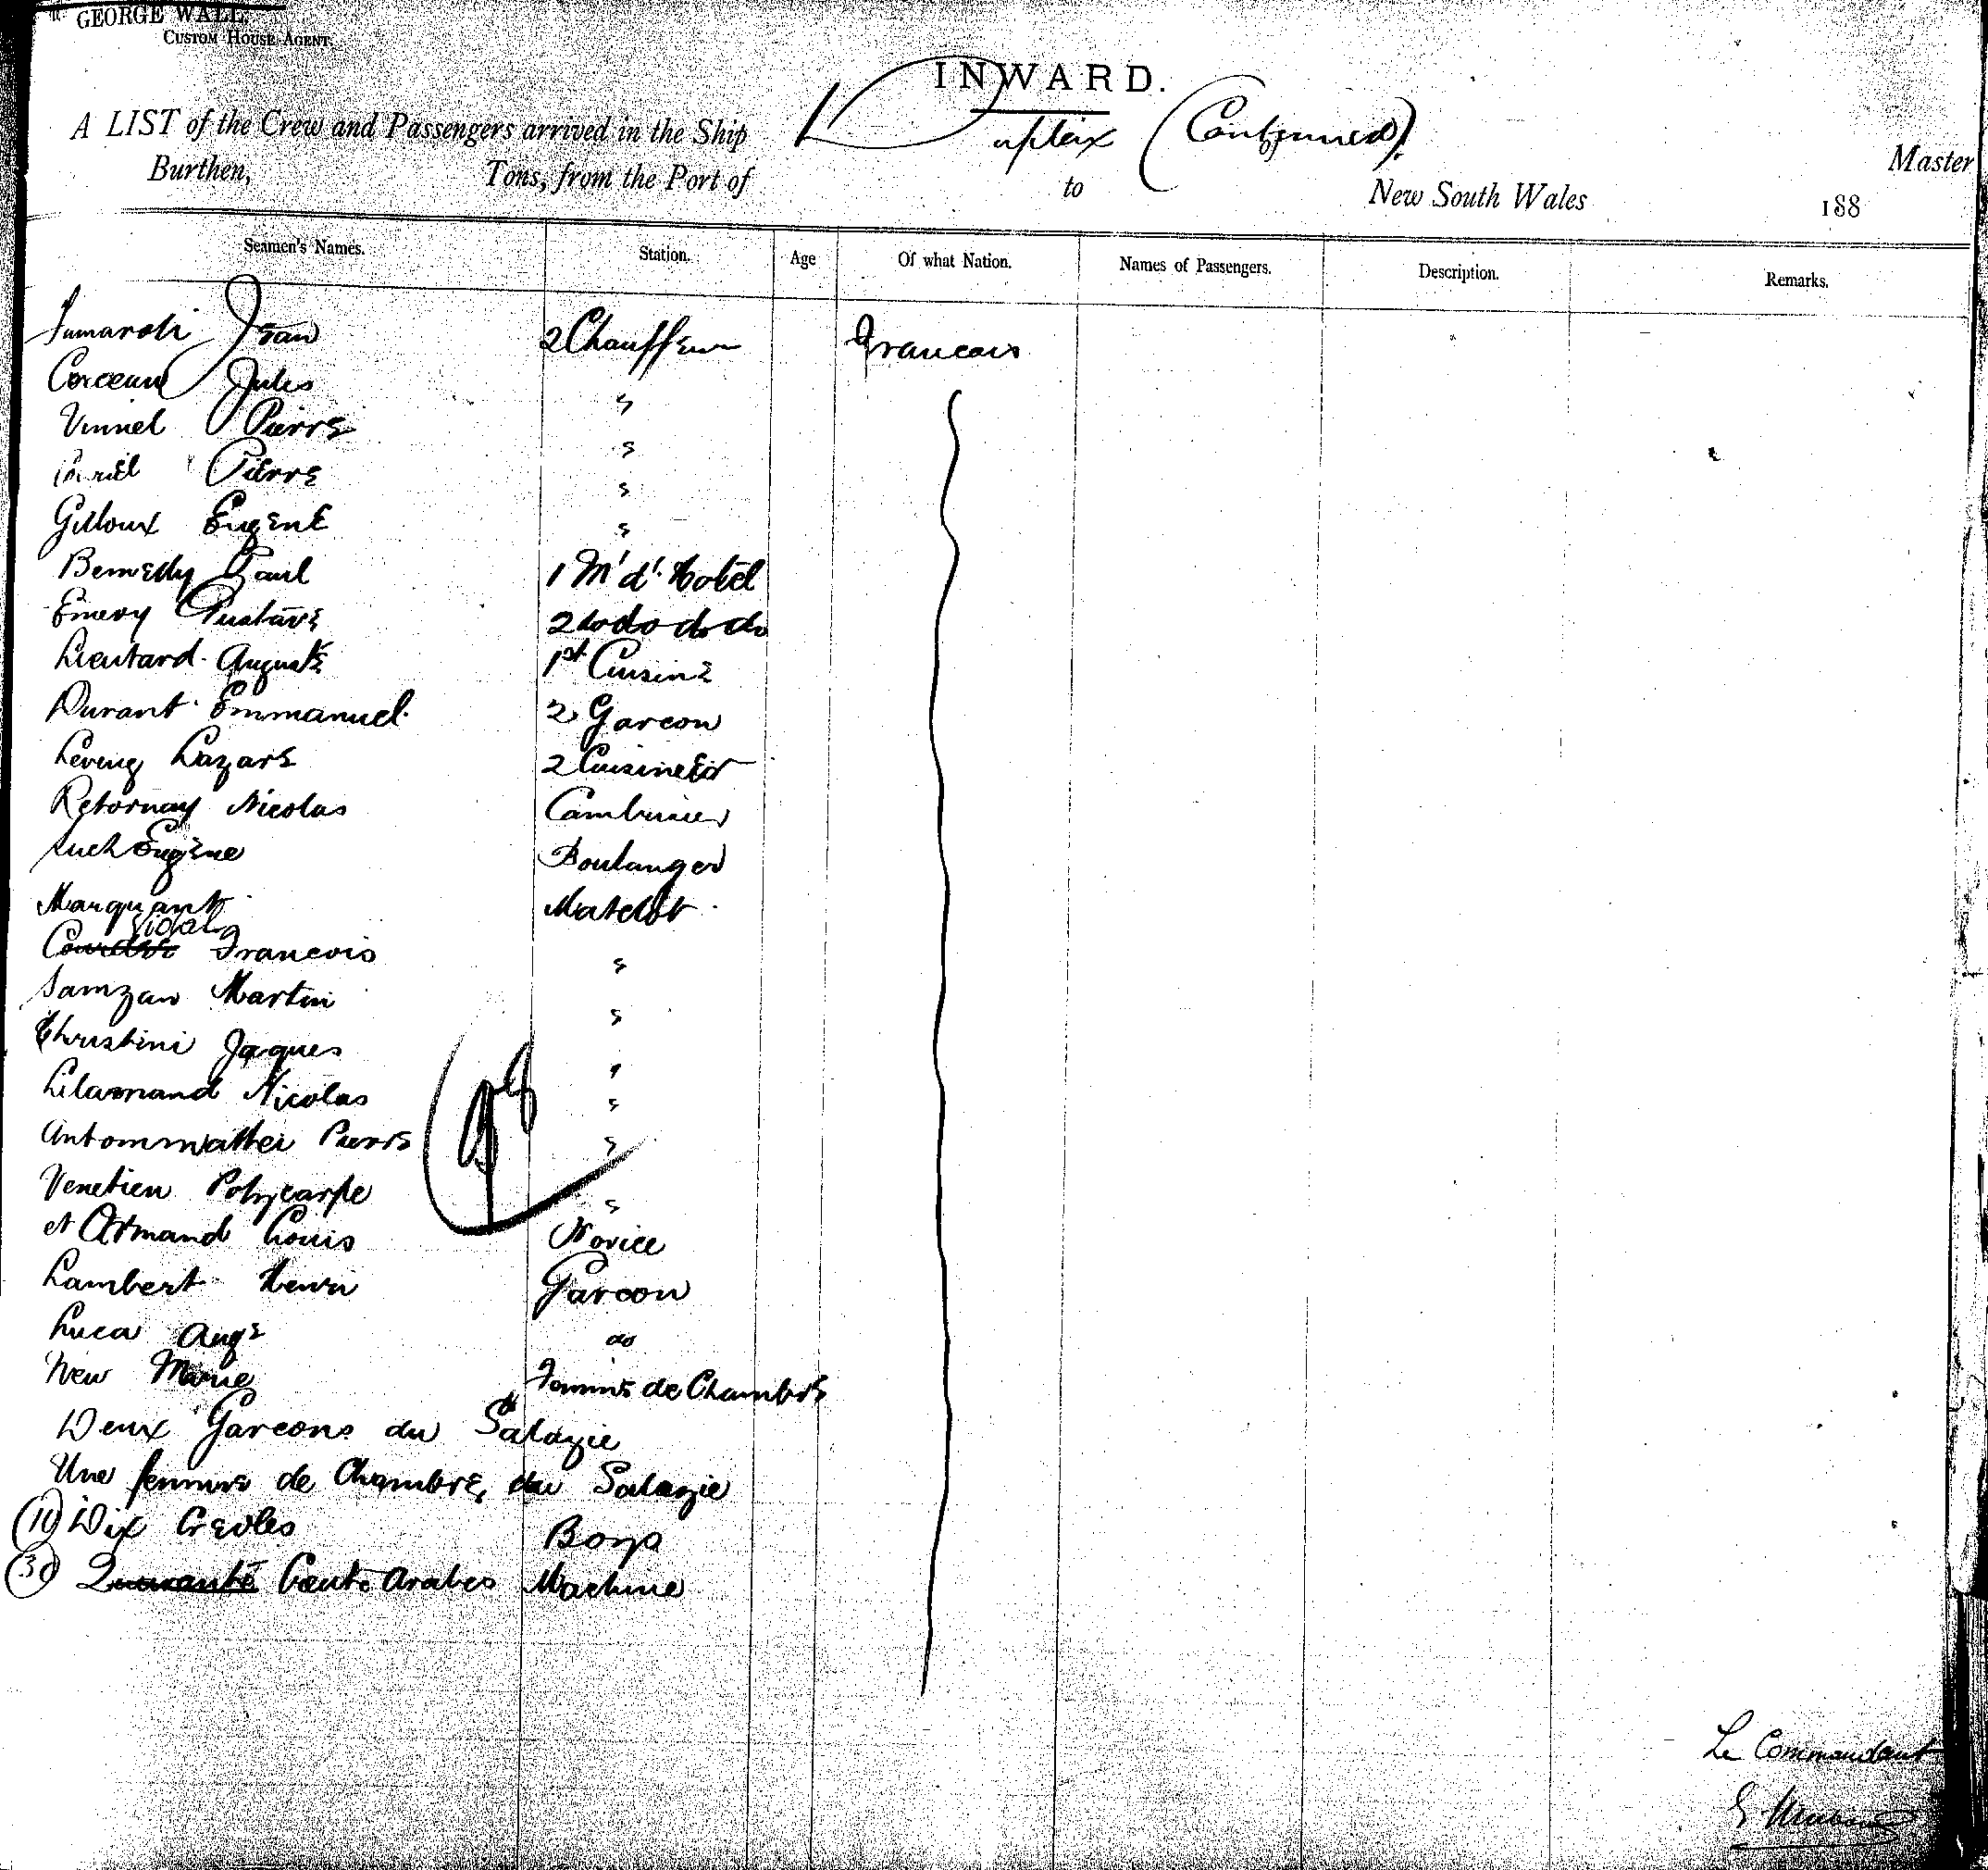 GEORGE WALL,
CUSTOM HOUSE AGENT.
INWARD.
A LIST of the Crew and Passengers arrived in the Ship Dupleix (Continued) Master
Burthen, Tons, from the Port of to New South Wales 188
Seamen's Names. Station. Age Of what Nation. Names of Passengers. Description. Remarks.
Fumaroli Jean 2 Chauffeur Francais
Jules "
Pierre "
Pierre "
Gilloux Eugene "
Paul 1 M' d' Hotel
Emery Gustave 2 do do do do
Lieutard Auguste 1st Cuisine
Durant Emmanuel 2 Garcon
Lazare 2 Cuisinier
Retornay Nicolas Cambusier
Eugene Boulanger
Marquant Matelot
Vidal
Francois "
Samzan Martin "
Christini Jaques "
Lilamand Nicolas "
Antommattei Pierre "
Venetien Polycarpe "
et Armand Louis Novice
Lambert Henri Garcon
Luca Auge do
New Marie Femme de Chambre
Deux Garcons du Salazie
Une femme de Chambre du Salazie
(10) Dix Creoles Boys
(30) Quarante Trente Arabes Machine
Le Commandant